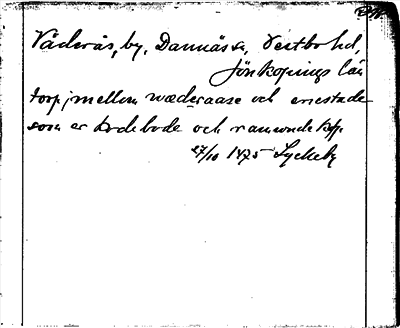 Väderås, by, Dannäs sn, Västbo hd,
Jönköpings län
torp, mellom wæderaase och enestade
som er bodebode och ramunde kp.
27/10 1475 Lyckeby